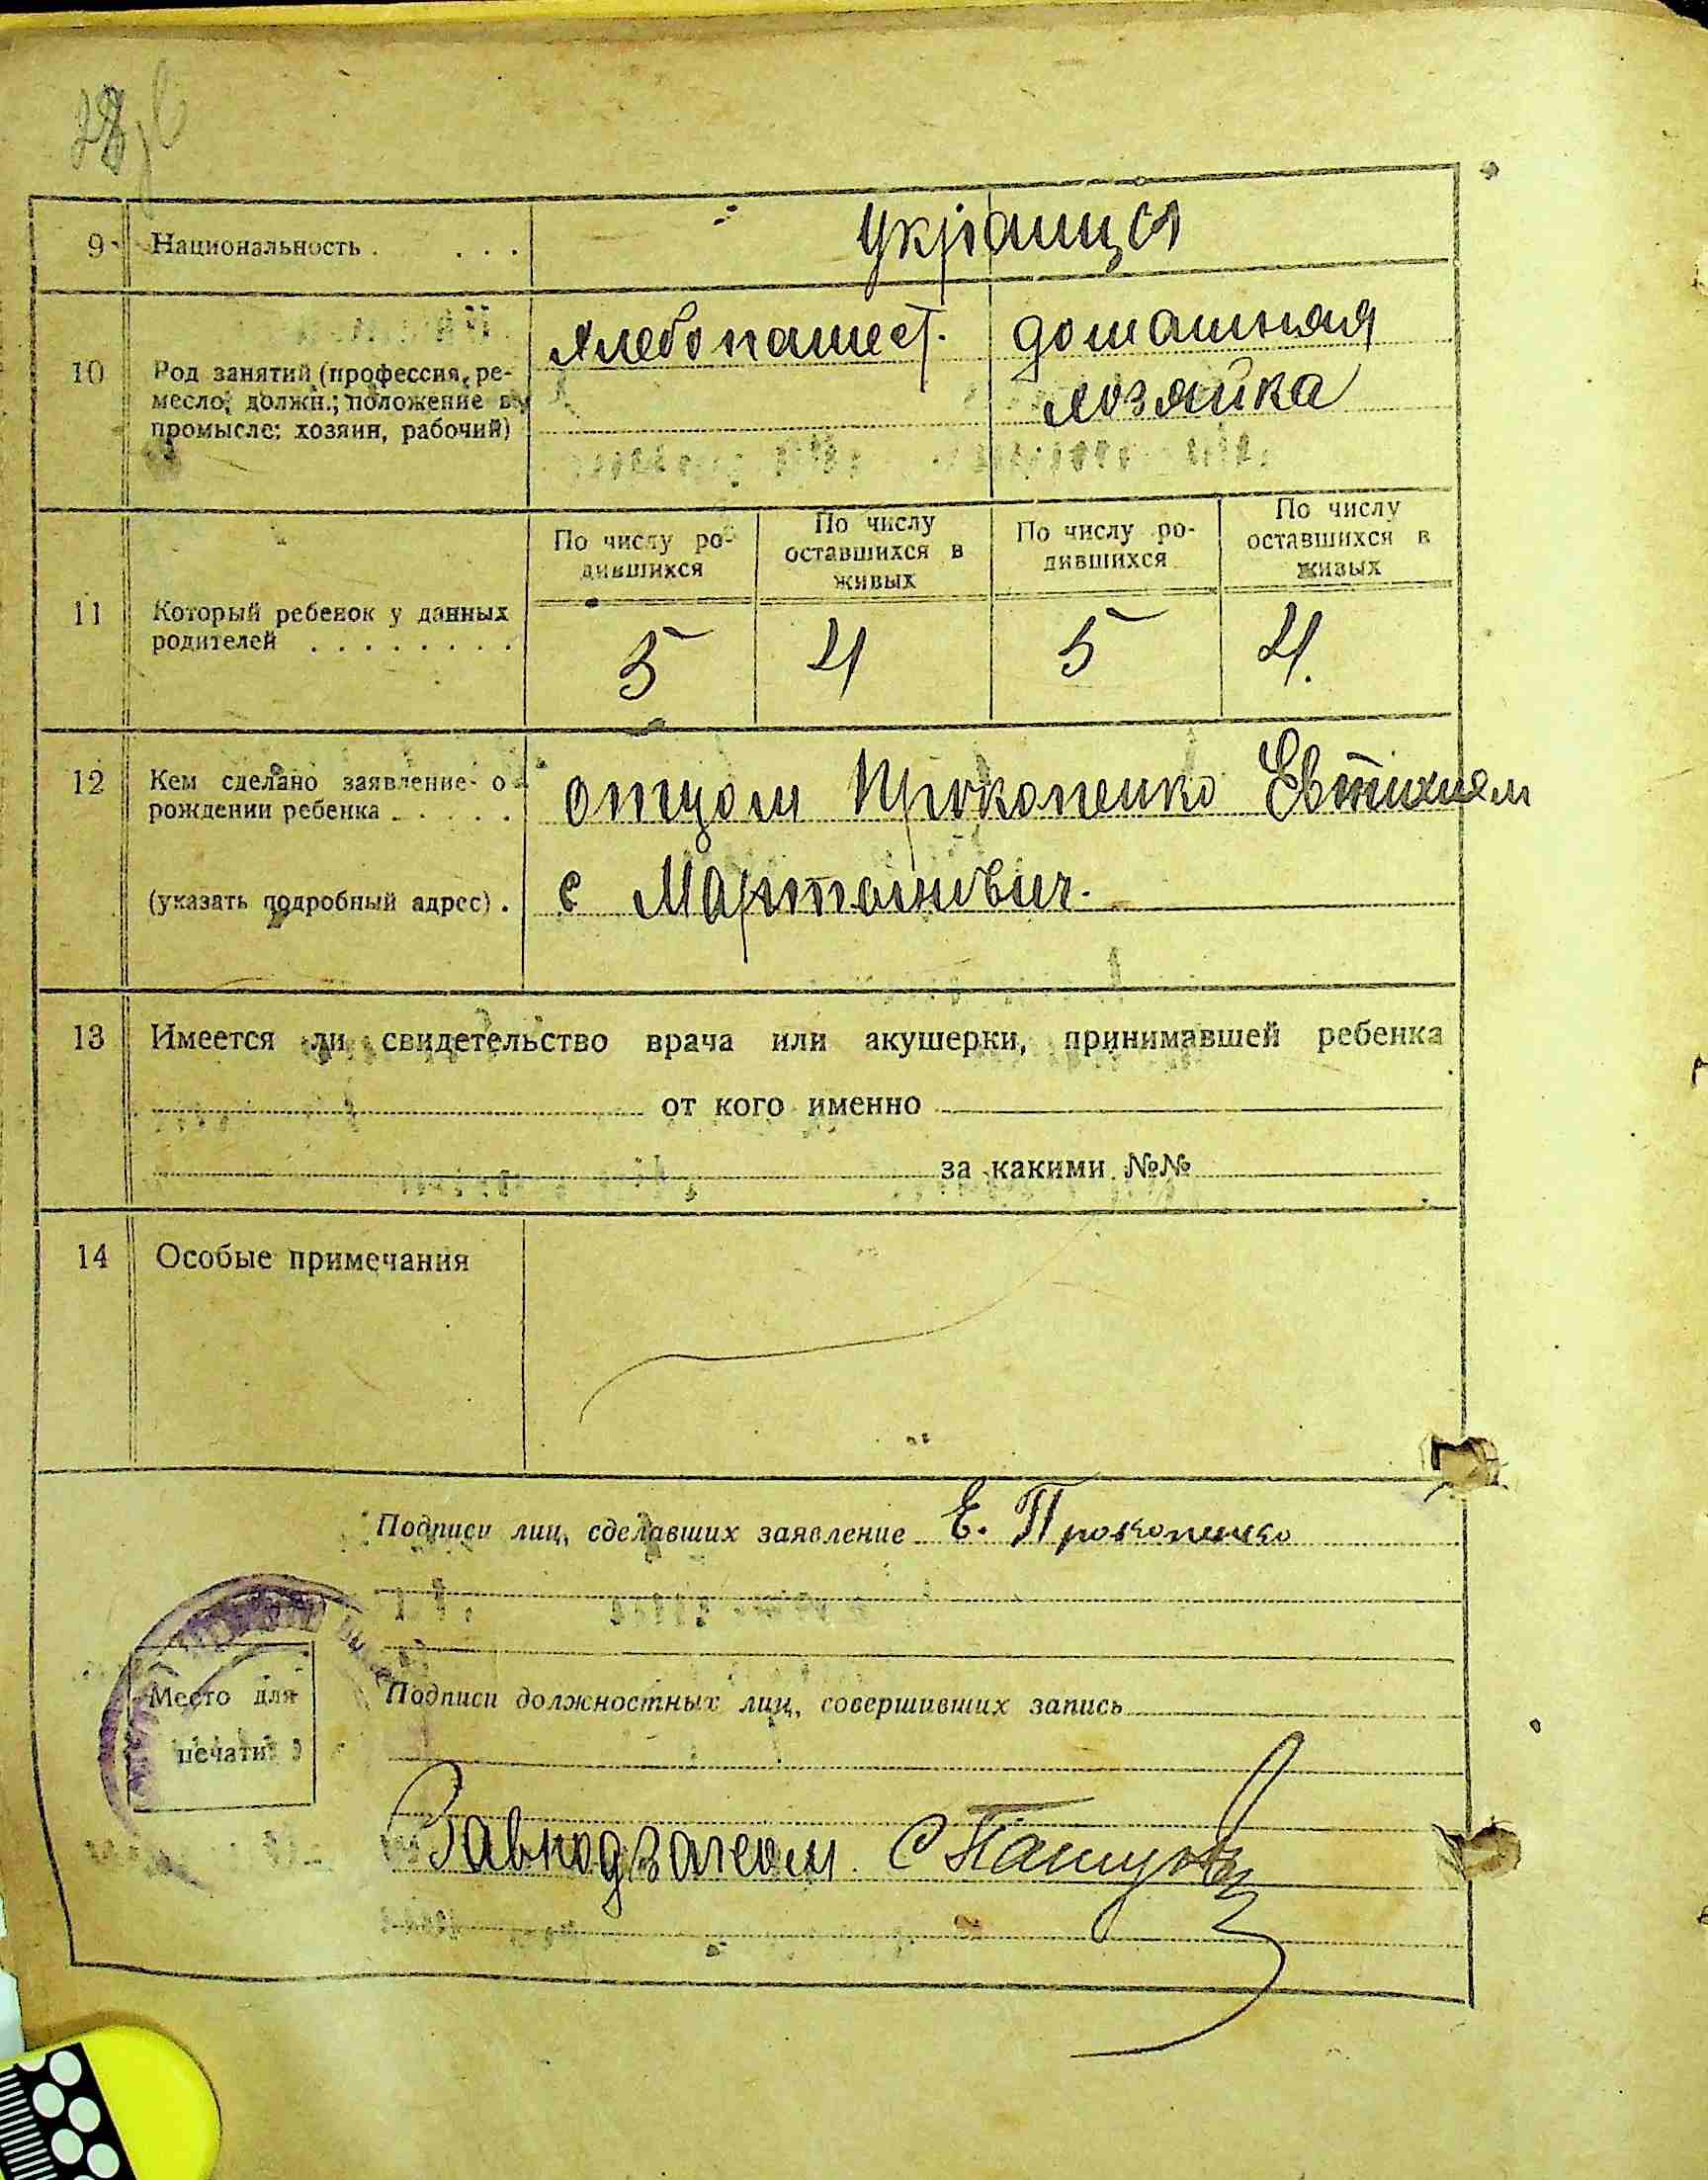 28
9 Национальность . . . . украинцы
10 Род занятий (профессия, ре-
месло, должн.; положение в
промысле: хозяин, рабочий)
хлебопашест. домашняя
хозяйка
По числу ро-
дившихся
По числу
оставшихся в
живых
По числу ро-
дившихся
По числу
оставшихся в
живых
11 Который ребенок у данных
родителей . . . . . . . .
5 4 5 4.
12 Кем сделано заявление о
рождении ребенка . . . . .
отцом Прокопенко Евтихием
(указать подробный адрес) . с Мартынович.
13 Имеется ли свидетельство врача или акушерки, принимавшей ребенка
от кого именно
за какими №№
14 Особые примечания
Подписи лиц, сделавших заявление Е. Прокопенко
Место для
печати
Подписи должностных лиц, совершивших запись
Завподзагсом